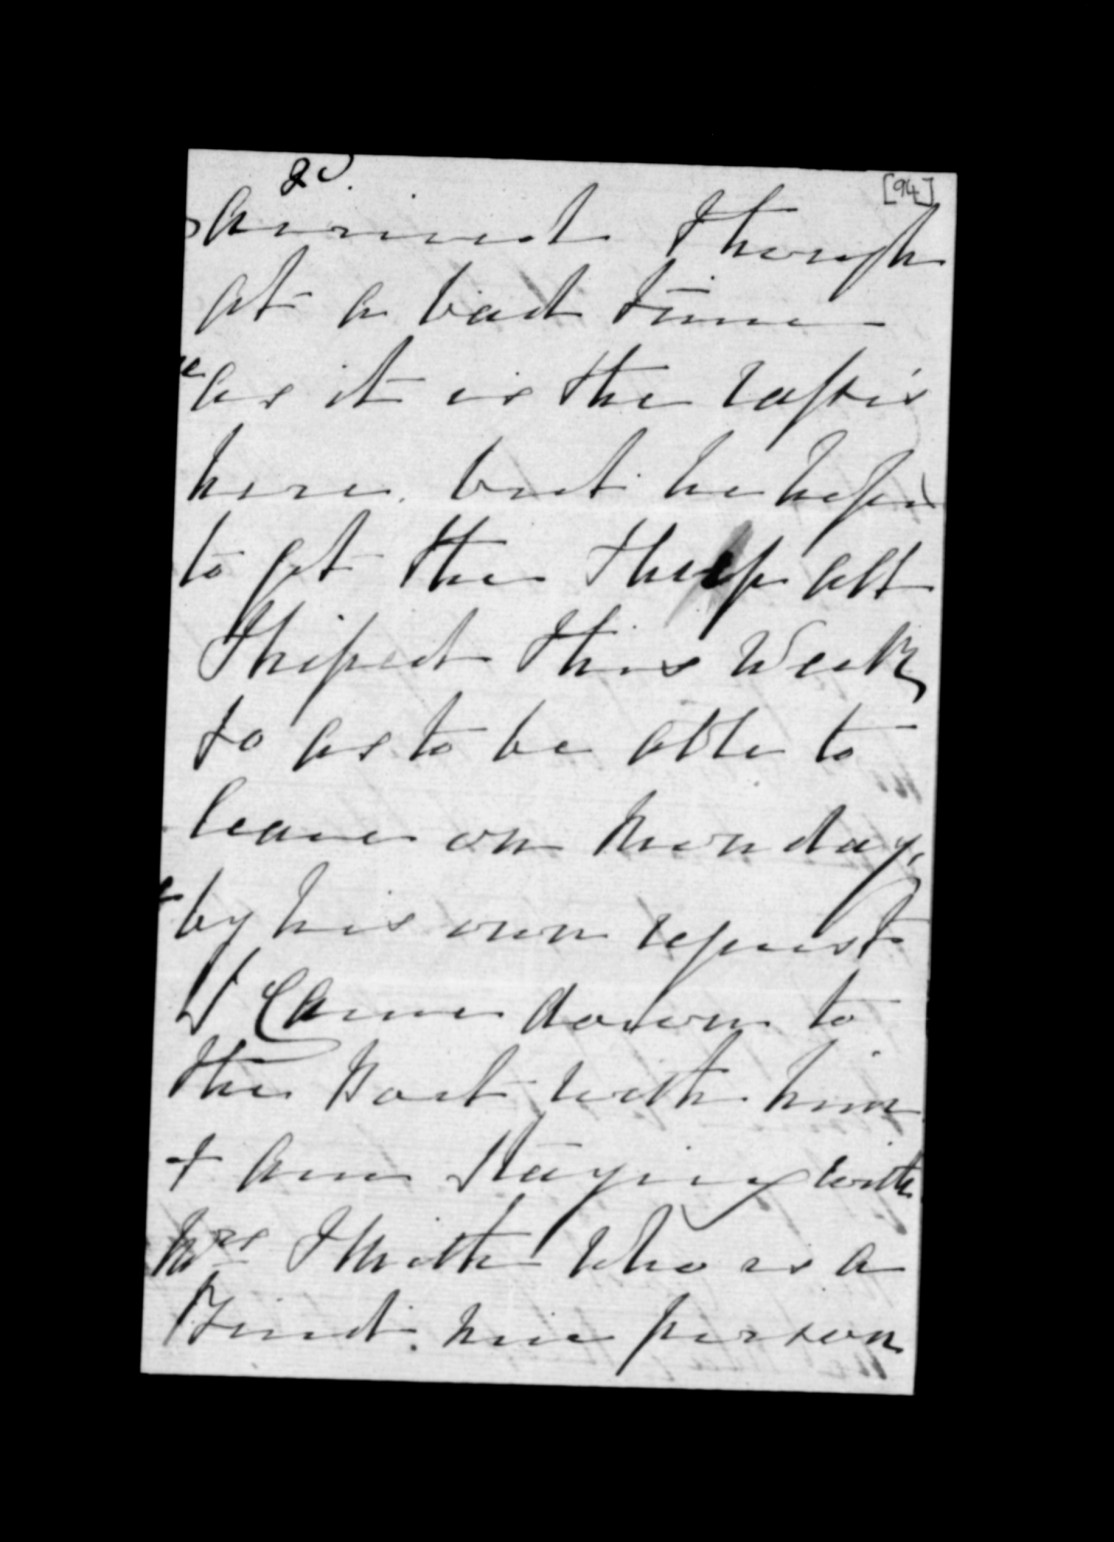 20. [94]
arrived though
at a bad time
as it is the
here. but he hopes
to get the Sheep all
Shiped this Week
so as to be able to
leave on Monday,
by his own request
I Came down to
the Boat with him
+ am Staying with
Mrs Smith who is a
Kind. nice person